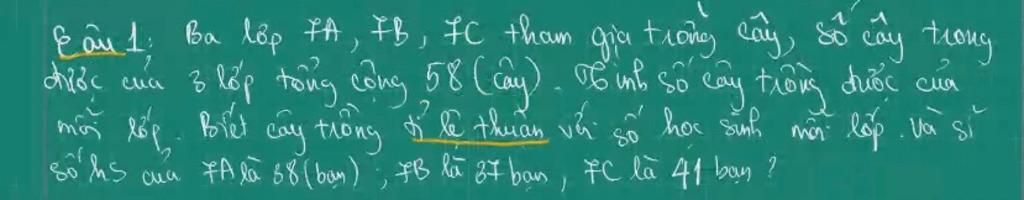 Câu 1: Ba lớp 7A, 7B, 7C tham gia trồng cây, số cây trong
được của 3 lớp tổng cộng 58 (cây). Tính số cây trồng được của
mỗi lớp. Biết cây trồng tỉ lệ thuận với số học sinh mỗi lớp. Và sĩ
số hs của 7A là 38 (bạn), 7B là 37 bạn, 7C là 41 bạn?